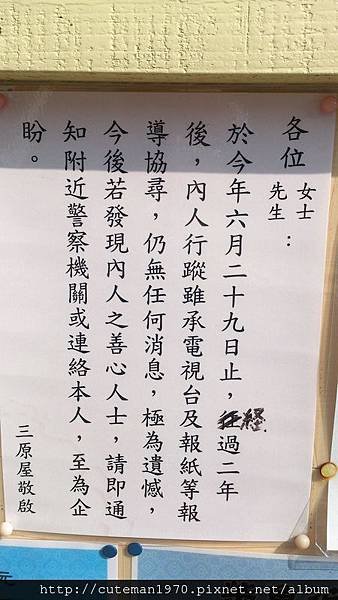 各位女士先生：
於今年六月二十九日止，經過二年
後，內人行蹤雖承電視台及報紙等報
導協尋，仍無任何消息，極為遺憾，
今後若發現內人之善心人士，請即通
知附近警察機關或連絡本人，至為企
盼。
三原屋敬啟
元
http://cuteman1970.pixnet.net/album